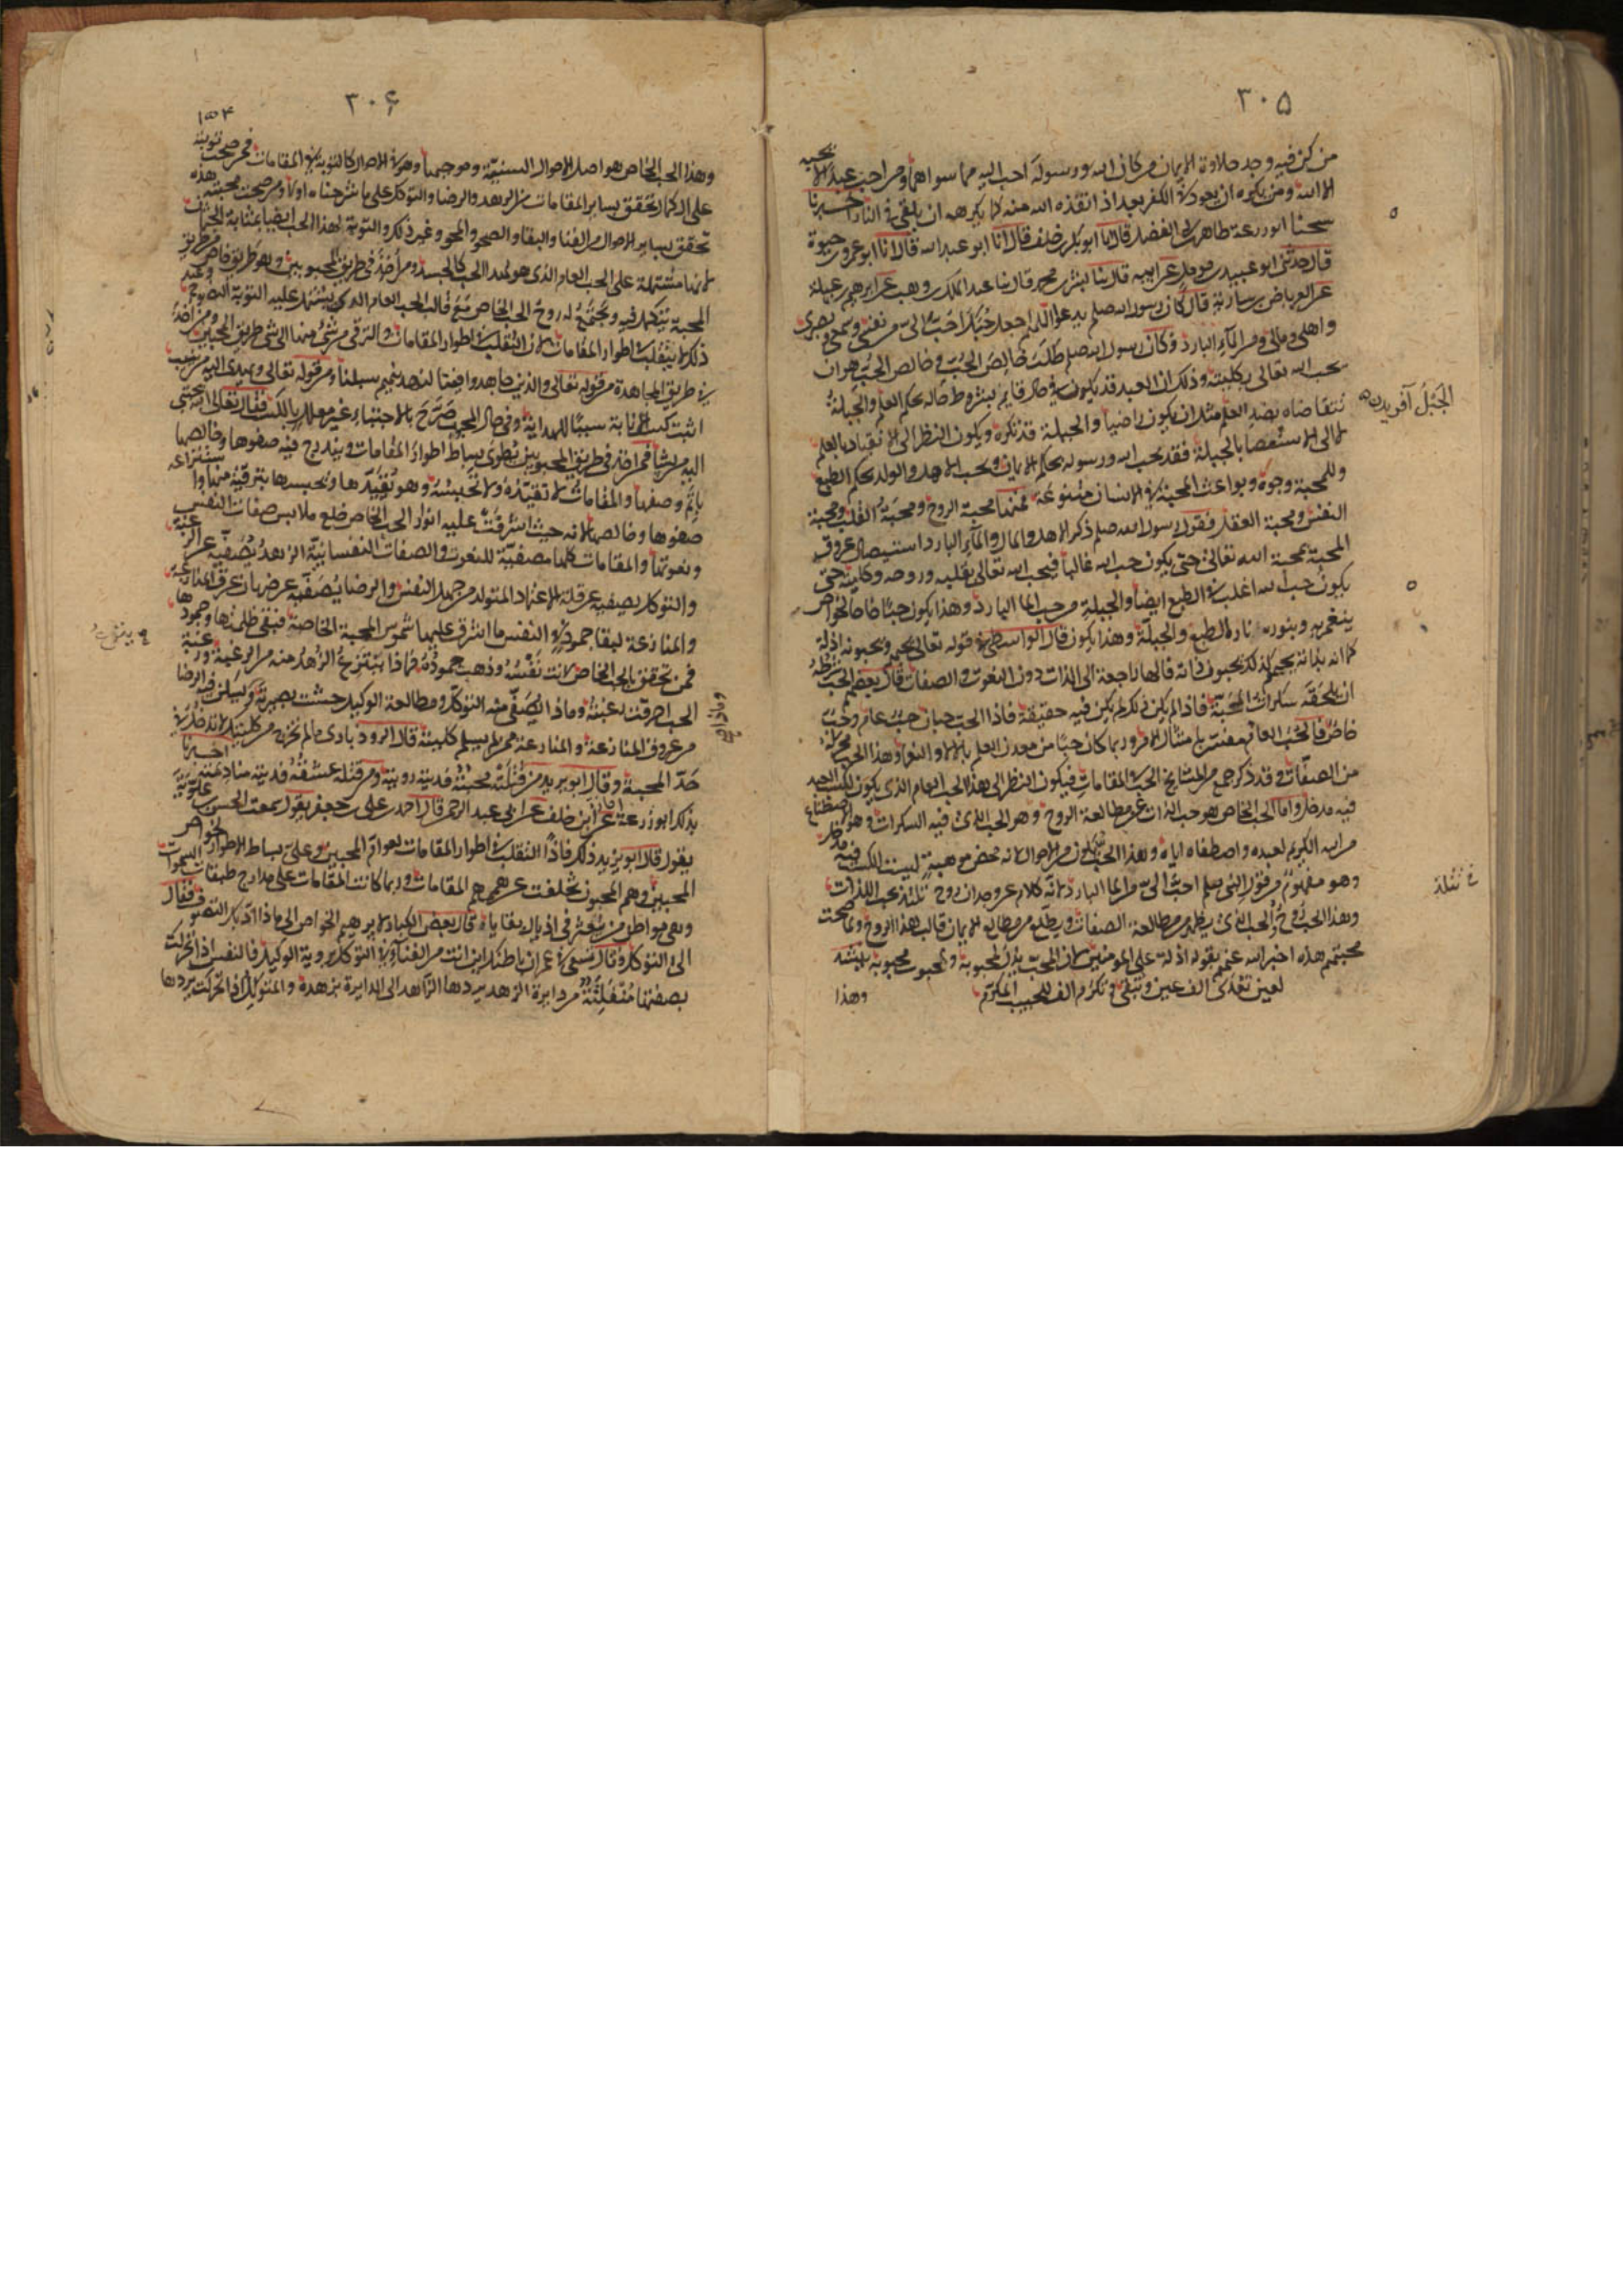 ٣٠٥
من كن فيه وجد حلاوة الايمان من كان الله ورسوله احب اليه مما سواهما ومن احب عبدا لا يحبه
الا لله ومن يكره ان يعود فى الكفر بعد اذ انقذه الله منه كما يكره ان يلقى فى النار اخبرنا
شيخنا ابو زرعة طاهر بن ابى الفضل قال انا ابو بكر بن خلف قال انا ابو عبد الله قال انا ابو عمر بن حيوة
قال حدثنى ابو عبيد بن عن ابيه قال ثنا بشر بن محمد قال ثنا عبد الملك بن وهب عن ابرهيم بن عبلة
عن العرباض بن سارية قال كان رسول الله صلعم يدعو اللهم اجعل حبك احب الى من نفسى وسمعى وبصرى
واهلى ومالى ومن الماء البارد وكان رسول الله صلعم طلب خالص الحب وخالص الحب هو ان
يحب الله تعالى بكليته وذلك ان العبد قد يكون فى حال قايم بشروط حاله بحكم العلم والجبلة
تتقاضاه بضد العلم مثل ان يكون راضيا والجبلة قد تكره ويكون النظر الى الانقياد بالعلم
لا الى الاستعصا بالجبلة فقد يحب الله ورسوله بحكم الايمان ويحب الاهل والولد بحكم الطبع
وللمحبة وجوه وبواعث المحبة فى الانسان متنوعة فمنها محبة الروح ومحبة القلب ومحبة
النفس ومحبة العقل فقول رسول الله صلعم ذكر الاهل والمال والماء البارد استيصال عروق
المحبة بمحبة الله تعالى حتى يكون حب الله غالبا فيحب الله تعالى بقلبه وروحه وكليته حتى
يكون حب الله اغلب فى الطبع ايضا والجبلة من حب الما البارد وهذا يكون حبا خاصا لخواص
ينغمر به وبنوره نار الطبع والجبلة وهذا يكون قال الواسطى فى قوله تعالى يحبهم ويحبونه
كما انه بذاته يحبهم كذلك يحبون ذاته فالها راجعة الى الذات دون النعوت والصفات قال بعضهم المحب شرطه
ان تلحقه سكرات المحبة فاذا لم يكن ذلك لم يكن فيه حقيقة فاذا الحب حبان حب عام وحب
خاص فالحب العام مفسر بامتثال الامر وربما كان حبا من معدن العلم بالالا والنعما وهذا الحب مخرجه
من الصفات وقد ذكر جمع من المشايخ الحب فى المقامات فيكون النظر الى هذا الحب العام الذى يكون لكسب العبد
فيه مدخل واما الحب الخاص هو حب الذات عن مطالعة الروح وهو الحب الذى فيه السكرات وهو الاصطناع
من الله الكريم لعبده واصطفاه اياه وهذا الحب يكون من الاحوال لانه محض موهبة ليست للكسب فيه مدخل
وهو مفهوم من قول النبى صلعم احب الى من الما البارد لانه كلام عن وجدان روح تلتذ بحب الذات
وهذا الحب روح والحب الذى يظهر من مطالعة الصفات ويطلع من مطالع الايمان قالب هذا الروح ولما صحت
محبتهم هذه اخبر الله عنهم بقوله اذلة على المومنين لان المحب يذل لمحبوبه ولمحبوب محبوبه
لعين تفدى الف عين وتتقى وتكرم الف للحبيب المكرم
وهذا
الجبل آفريدن
٣٠٦
وهذا الحب الخاص هو اصل الاحوال السنية وموجبها وهو فى الاحوال كالتوبة فى المقامات فمن صحت توبته
على الكمال تحقق بساير المقامات من الزهد والرضا والتوكل على ما شرحناه اولا ومن صحت محبته هذه
تحقق بساير الاحوال من الفنا والبقا والصحو والمحو وغير ذلك والتوبة لهذا الحب ايضا بمثابة الجثمان
لانها مشتملة على الحب العام الذى هو لهذا الحب كالجسد ومن اخذ فى طريق المحبوبين وهو طريق خاص من طريق
المحبة يتكمل فيه ويجتمع له روح الحب الخاص مع قالب الحب العام الذى يشتمل عليه التوبة النصوح وعند
ذلك لا يتقلب فى اطوار المقامات لان التقلب فى اطوار المقامات والترقى من شىء منها الى شىء طريق المحبين ومن اخذ
فى طريق المجاهدة من قوله تعالى والذين جاهدوا فينا لنهدينهم سبلنا ومن قوله تعالى ويهدى اليه من ينيب
اثبت كسب الانابة سببا للهداية وفى حال المحبوب صرح بالاجتباء غير معلل بالكسب فقال تعالى الله يجتبى
اليه من يشا فمن اخذ فى طريق المحبوبين يطوى بساط اطوار المقامات ويندرج فيه صفوها وخالصها
باتم وصفها والمقامات لا تقيده ولا تحبسه وهو يقيدها ويحبسها بترقيه منها وانتزاعه
صفوها وخالصها لانه حيث اشرقت عليه انوار الحب الخاص خلع ملابس صفات النفس
ونعوتها والمقامات كلها مصفية للنعوت والصفات النفسانية الزهد يصفيه عن الرغبة
والتوكل يصفيه عن قلة الاعتماد المتولد من جهل النفس والرضا يصفيه عن ضربان عرق المنازعة
والمنازعة لبقا جمود فى النفس ما اشرق عليها شموس المحبة الخاصة فبقى ظلمتها وجمودها
فمن تحقق بالحب الخاص لانت نفسه وذهب جموده فماذا ينتزع الزهد منه من الرغبة ورغبة
الحب احرقت رغبته وماذا يصفى منه التوكل ومطالعة الوكيل حشت بصيرته وماذا يسكن فيه الرضا
من عروق المنازعة والمنازعة ممن لم يسلم كليته قال الروذبادى ما لم تخرج من كليتك لا تدخل فى
حد المحبة وقال ابو يزيد من قتلته محبته فديته رويته ومن قتله عشقه فديته منادمته اخبرنا
بذلك ابو زرعة عن ابن خلف عن ابى عبد الرحمن قال احمد بن على بن جعفر يقول سمعت الحسن بن علوية
يقول قال ابو يزيد ذلك فاذا التقلب فى اطوار المقامات لعوام المحبين وطى بساط الاطوار لخواص
المحبين وهم المحبون تخلفت عن هممهم المقامات وربما كانت المقامات على مدارج طبقات السموات
وهى مواطن من يتعثر فى اذيال بقاياه قال بعض الكبار لابرهيم الخواص الى ماذا ادى بك التصوف فقال
الى التوكل وقال تسعى فى عمران باطنك اين انت من الفنا فى التوكل بروية الوكيل فالنفس اذا تحركت
بصفتها متفلتة من دايرة الزهد يردها الزاهد الى الدايرة بزهده والمتوكل اذا تحركت يردها